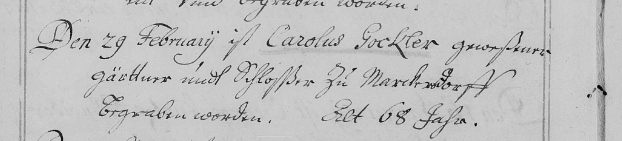 und begraben worden.
Den 29 February ist Carolus Gockler geweßener
gärttner undt Schloßer Zu Marckersdorff
begraben worden. Alt 68 Jahr.